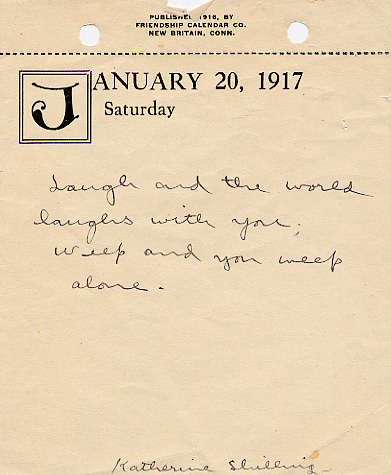 PUBLISHED 1916, BY
FRIENDSHIP CALENDAR CO.
NEW BRITAIN, CONN.
JANUARY 20, 1917
Saturday
Laugh and the world
laughs with you;
Weep and you weep
alone.
Katherine Shilling